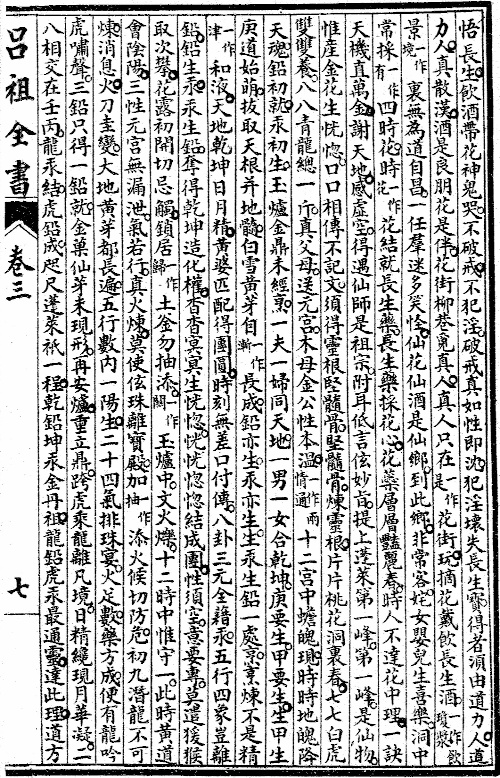 悟長生飲酒帶花神鬼哭不破戒不犯淫破戒真如性即沈犯淫壞失長生寶得者須由道力人道
力人真散漢酒是良朋花是伴花街柳巷覓真人真人只在一作是花街玩摘花戴飲長生酒一作飲瓊漿
景一作境裏無為道自昌一任羣迷多笑怪仙花仙酒是仙鄉到此鄉非常客姹女嬰兒生喜樂洞中
常採一作有四時花時一作花花結就長生藥長生藥採花心花藥層層艷麗春時人不達花中理一訣
天機直萬金謝天地感虛空得遇仙師是祖宗附耳低言伭妙旨提上蓬萊第一峰第一峰是仙物
惟產金花生恍惚口口相傳不記文須得靈根堅髓骨堅髓骨煉靈根片片桃花洞裏春七七白虎
雙雙養八八青龍總一斤真父母送元宮木母金公性本溫一作情通十二宮中蟾魄現時時地魄降
天魂鉛初就汞初生玉爐金鼎未經烹一夫一婦同天地一男一女合乾坤庚要生甲要生生甲生
庚道始萌拔取天根并地髓白雪黃芽自一作漸長成鉛亦生汞亦生生汞生鉛一處烹烹煉不是精
一作津和液天地乾坤日月精黃婆匹配得團圓時刻無差口付傳八卦三元全藉汞五行四象豈離
鉛鉛生汞汞生鉛奪得乾坤造化權杳杳冥冥生恍惚恍恍惚惚結成團性須空意要專莫遣猿猴
取次攀花露初開切忌觸鎖居一作歸土釜勿抽添一作關玉爐中文火爍十二時中惟守一此時黃道
會陰陽三性元宮無漏泄氣若行真火煉莫使伭珠離寶殿加一作抽添火候切防危初九潛龍不可
煉消息火刀圭變大地黃芽都長遍五行數內一陽生二十四氣排珠宴火足數藥方成便有龍吟
虎嘯聲三鉛只得一鉛就金菓仙芽未現形再安爐重立鼎跨虎乘龍離凡境日精纔現月華凝二
八相交在壬丙龍汞結虎鉛成咫尺蓬萊祇一程乾鉛坤汞金丹祖龍鉛虎汞最通靈達此理道方
呂祖全書
卷三
七